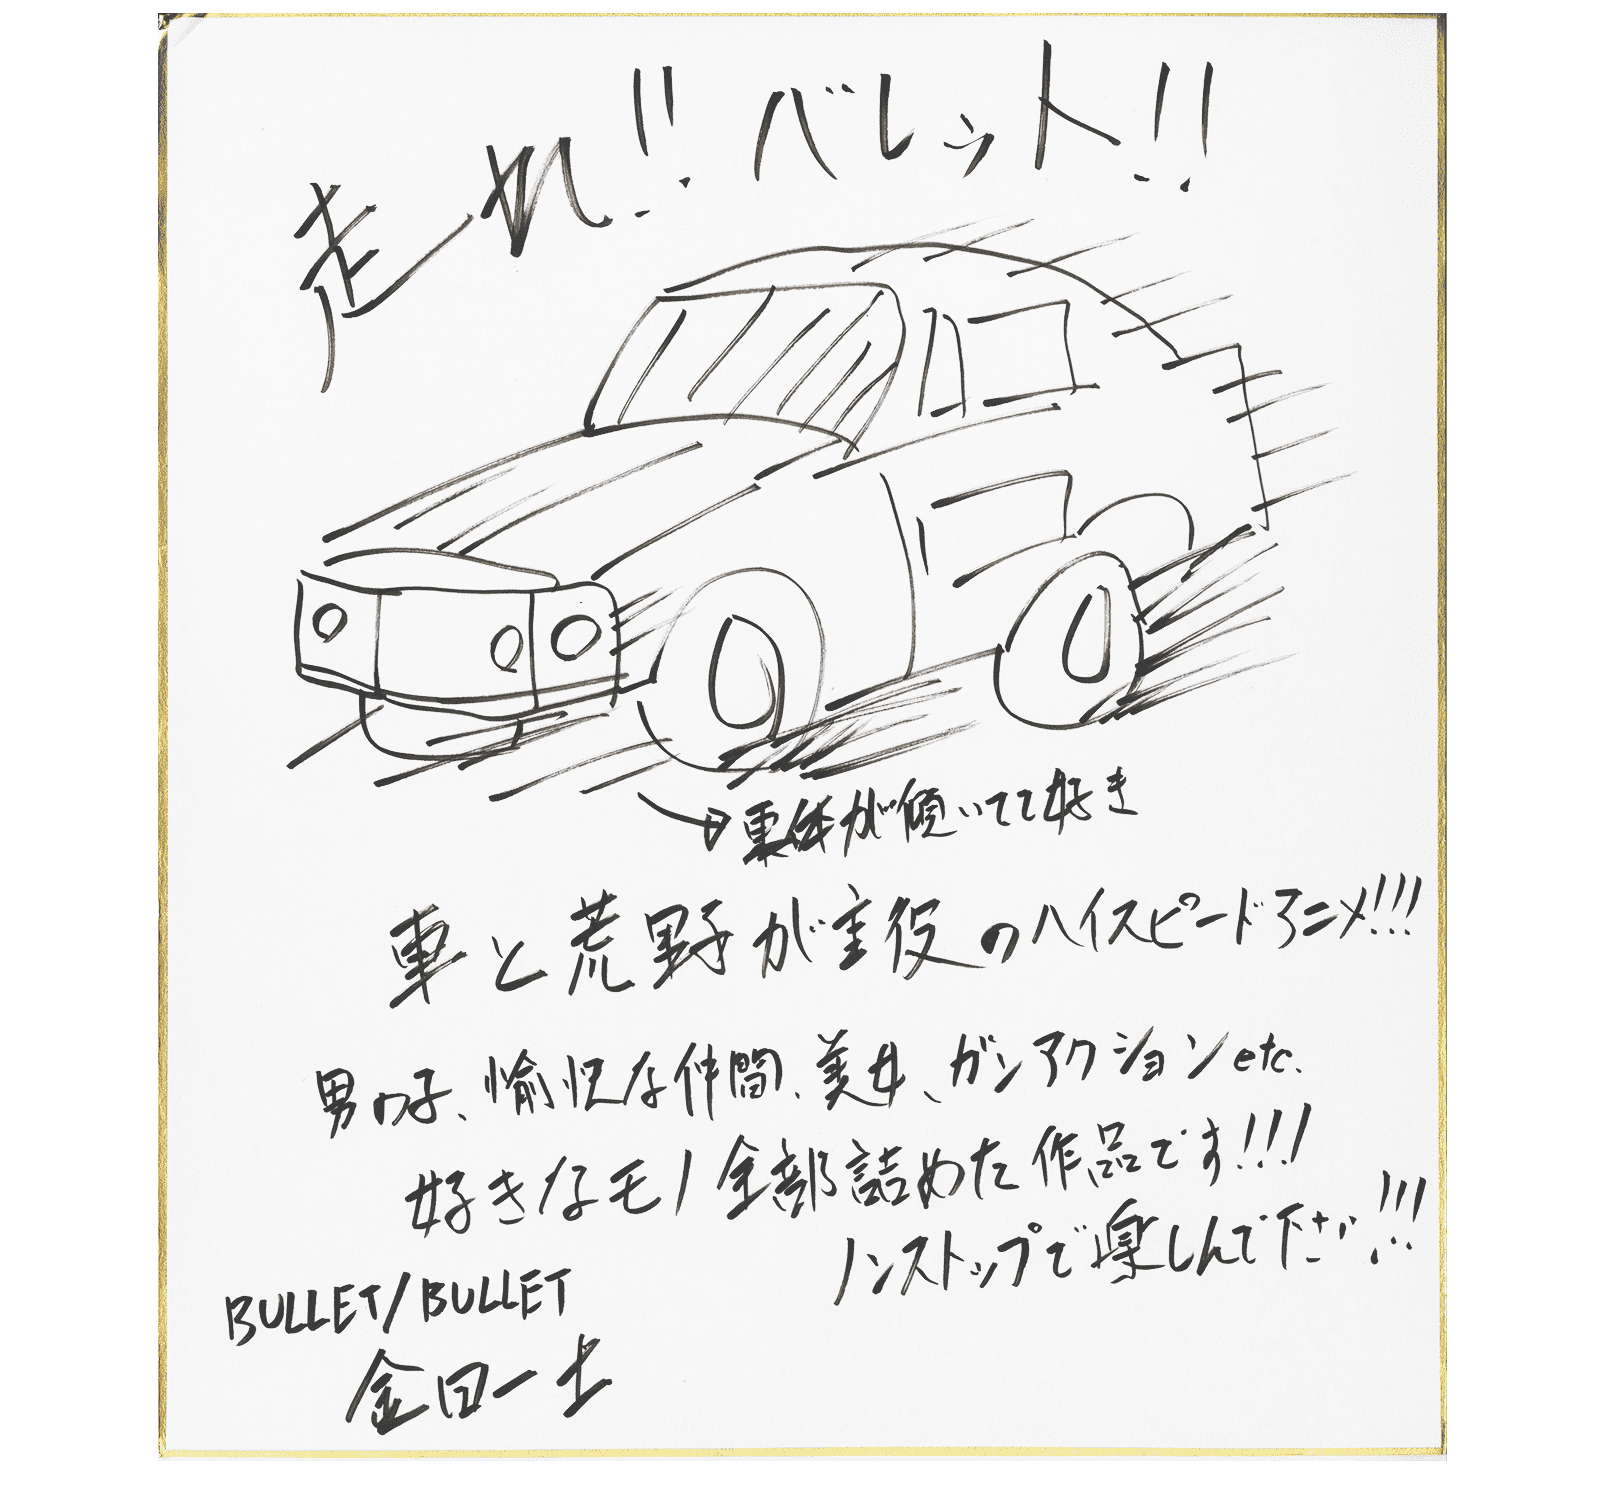 走れ!! バレット!!
車体が傾いてて好き
車と荒野が主役のハイスピードアニメ!!!
男の子、愉快な仲間、美女、ガンアクションetc.
好きなモノ全部詰めた作品です!!!
ノンストップで楽しんで下さい!!!
BULLET/BULLET
金田一士